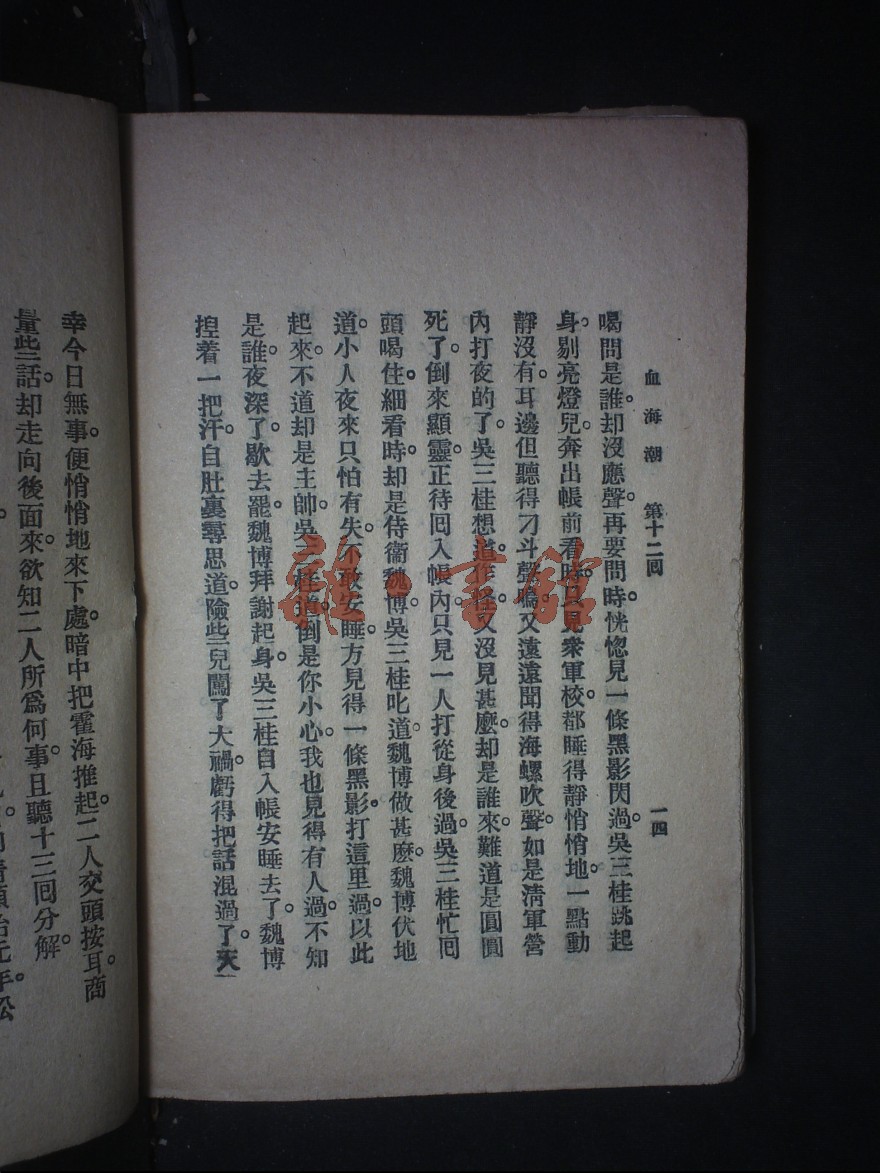 血海潮　第十二回　一四
喝問是誰。却沒應聲。再要問時。恍惚見一條黑影閃過。吳三桂跳起
身。剔亮燈兒。奔出帳前看時。只見衆軍校。都睡得靜悄悄地。一點動
靜沒有。耳邊但聽得刁斗聲嗚。又遠遠聞得海螺吹聲。如是淸軍營
內打夜的了。吳三桂想道。作怪。又沒見甚麽。却是誰來。難道是圓圓
死了。倒來顯靈。正待回入帳內。只見一人打從身後過。吳三桂忙回
頭喝住。細看時。却是侍衞魏博。吳三桂叱道。魏博做甚麽。魏博伏地
道。小人夜來只怕有失。不敢安睡。方見得一條黑影。打這里過。以此
起來。不道却是主帥。吳三桂道。倒是你小心。我也見得有人過。不知
是誰。夜深了。歇去罷。魏博拜謝起身。吳三桂自入帳安睡去了。魏博
揑着一把汗。自肚裏尋思道。險些兒闖了大禍。虧得把話混過了。天
幸今日無事。便悄悄地來下處。暗中把霍海推起。二人交頭按耳商
量些話。却走向後面來。欲知二人所爲何事。且聽十三回分解。
雜·書館